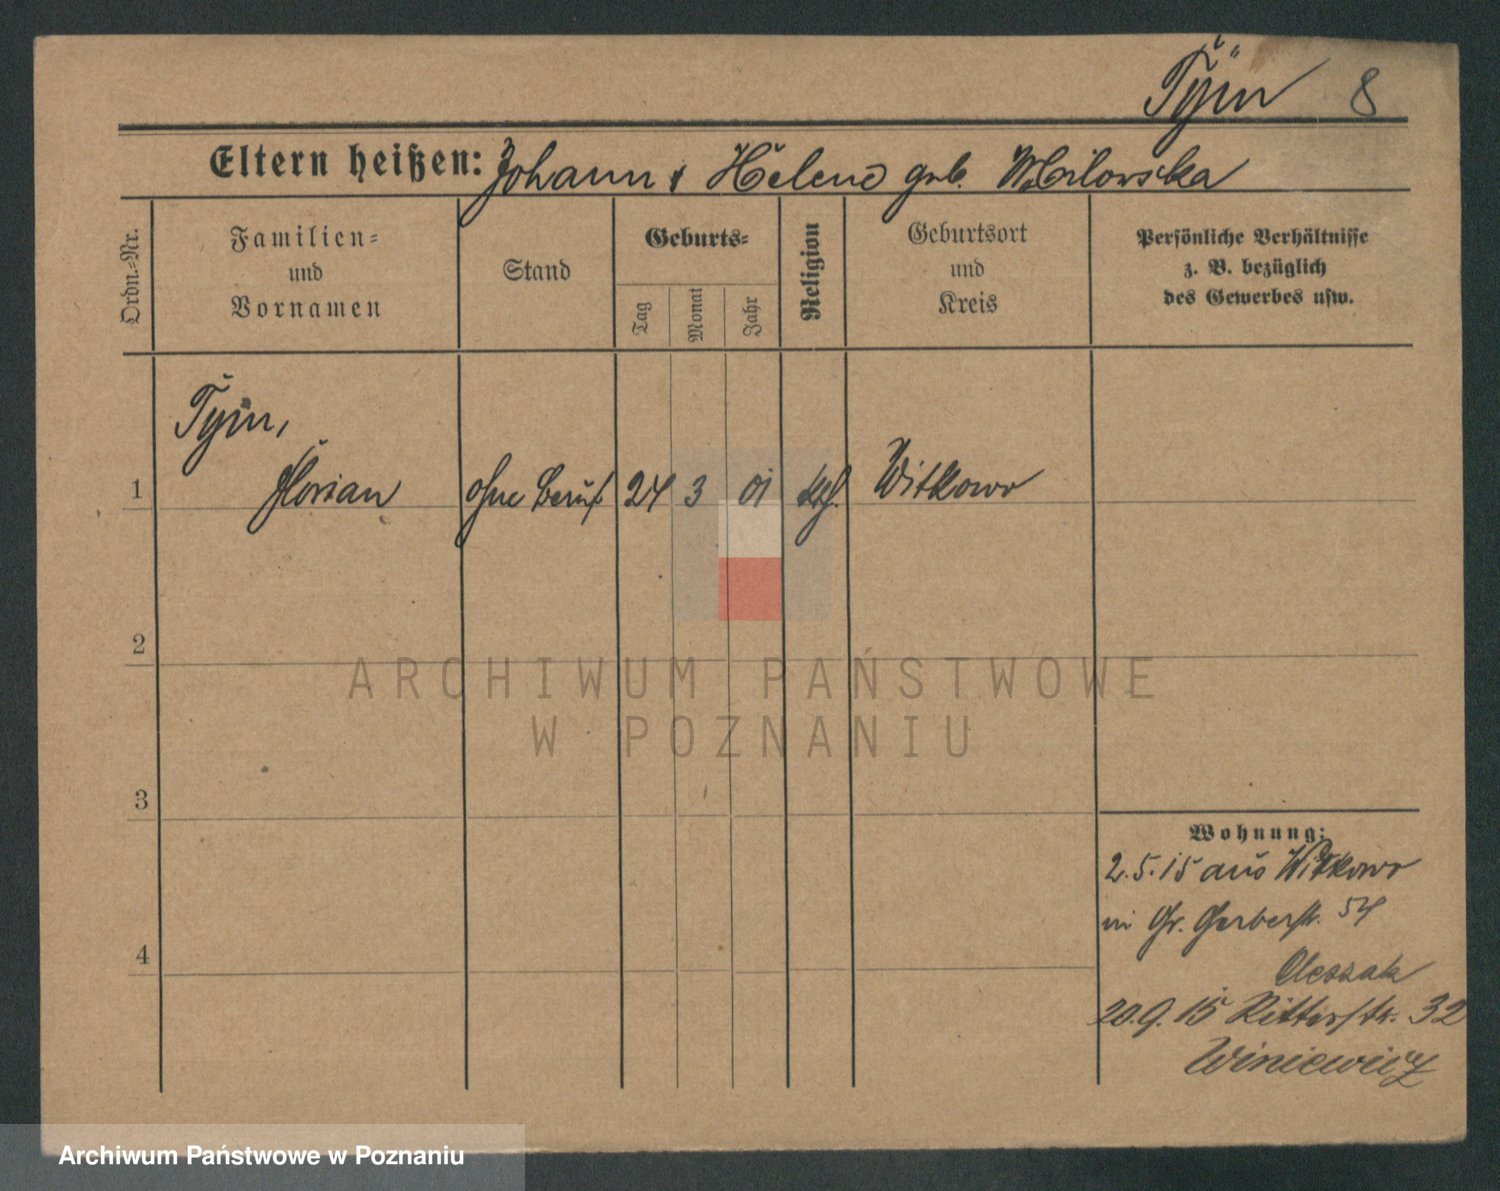 Tÿm 8
Eltern heißen: Johann & Helene geb.
Ordn.=Nr.
Familien=
und
Vornamen
Stand
Geburts=
Tag
Monat
Jahr
Religion
Geburtsort
und
Kreis
Persönliche Verhältnisse
z. B. bezüglich
des Gewerbes usw.
Tym,
1 Florian ohne Beruf 24 3 01 kth. Witkowo
2
ARCHIWUM PAŃSTWOWE
W POZNANIU
3
Wohnung:
2.5.15 aus Witkowo
in Gr. Gerberstr. 54
4
Oleszak
20.9.15 Ritterstr. 32
Winiewicz
Archiwum Państwowe w Poznaniu